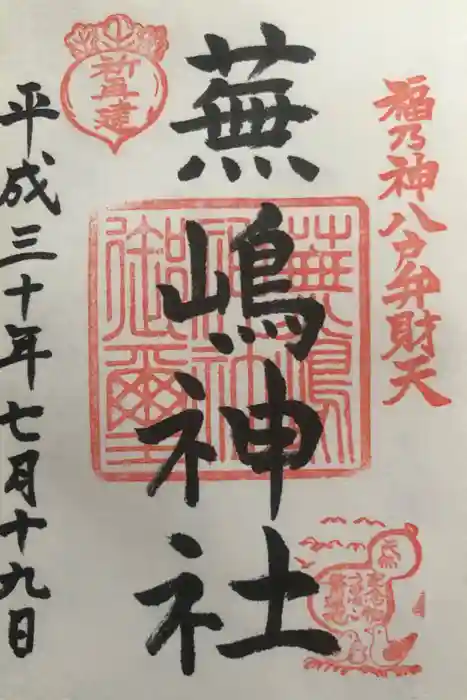 福乃神八戸弁財天
蕪嶋神社
蕪嶋神社御璽
平成三十年七月十九日
祈再建